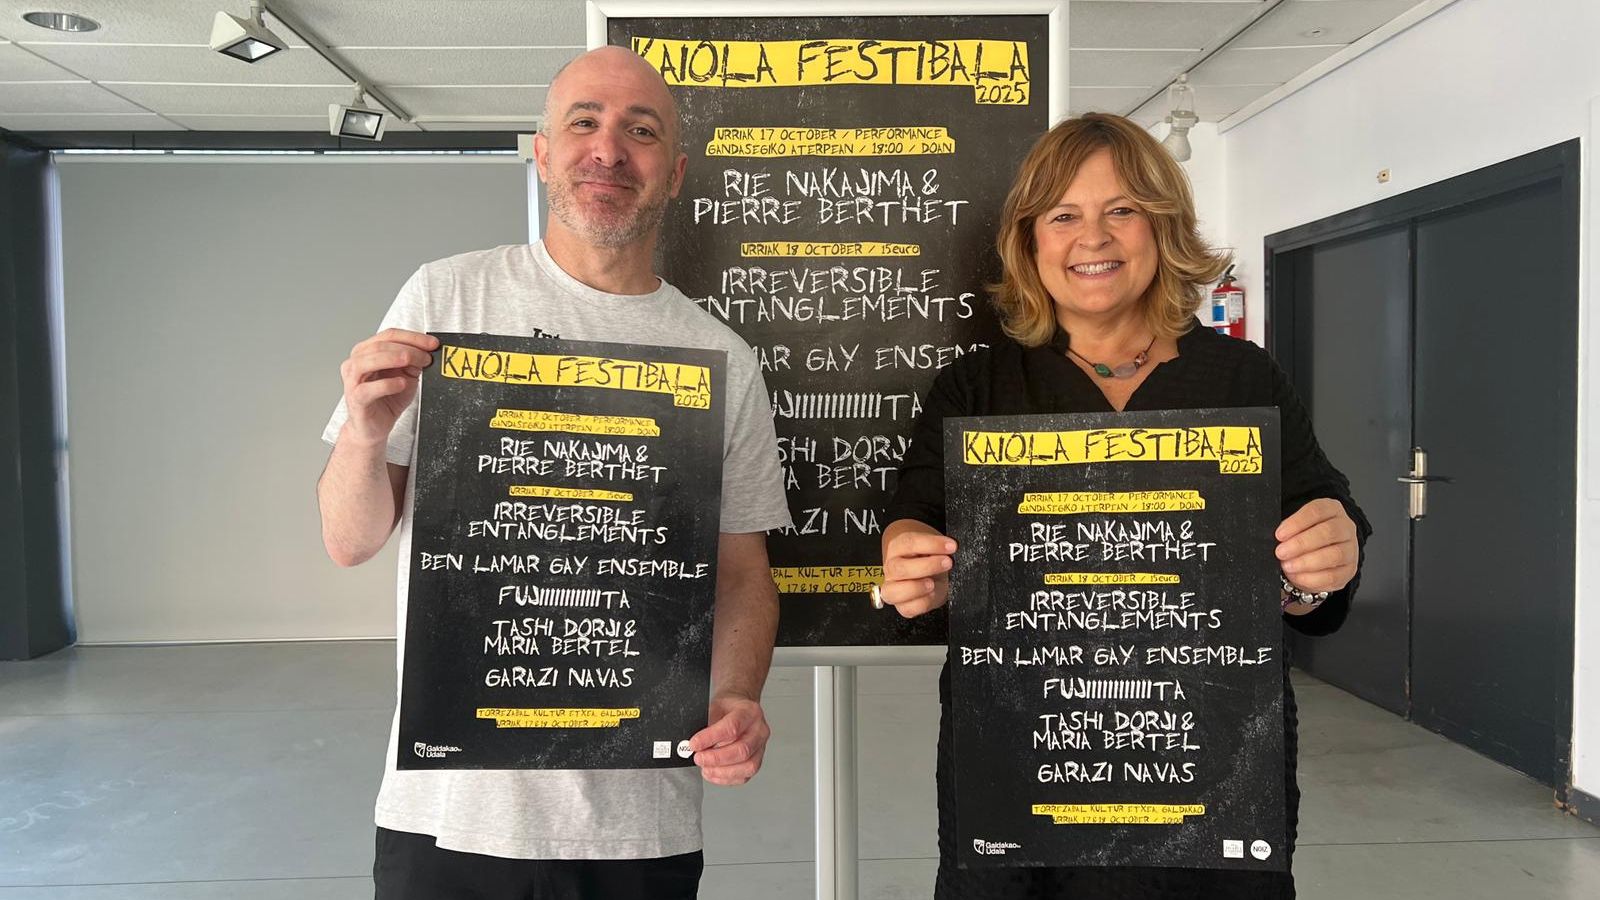 KAIOLA FESTIBALA
2025
URRIAK 17 OCTOBER / PERFORMANCE
GANDASEGIKO ATERPEAN / 18:00 / DOAN
RIE NAKAJIMA &
PIERRE BERTHET
URRIAK 18 OCTOBER / 15euro
IRREVERSIBLE
ENTANGLEMENTS
AR GAY ENSEM
UJIIIIIIIIIIIITA
SHI DORJ
A BERT
AZI NA
BAL KULTUR ETXE
K 17&18 OCTOBER /
KAIOLA FESTIBALA
2025
URRIAK 17 OCTOBER / PERFORMANCE
GANDASEGIKO ATERPEAN / 18:00 / DOAN
RIE NAKAJIMA &
PIERRE BERTHET
URRIAK 18 OCTOBER / 15euro
IRREVERSIBLE
ENTANGLEMENTS
BEN LAMAR GAY ENSEMBLE
FUJIIIIIIIIIIIITA
TASHI DORJI &
MARIA BERTEL
GARAZI NAVAS
TORREZABAL KULTUR ETXEA, GALDAKAO
URRIAK 17&18 OCTOBER / 20:00
Galdakaoko
Udala
NOIZ
KAIOLA FESTIBALA
2025
URRIAK 17 OCTOBER / PERFORMANCE
GANDASEGIKO ATERPEAN / 18:00 / DOAN
RIE NAKAJIMA &
PIERRE BERTHET
URRIAK 18 OCTOBER / 15euro
IRREVERSIBLE
ENTANGLEMENTS
BEN LAMAR GAY ENSEMBLE
FUJIIIIIIIIIIIITA
TASHI DORJI &
MARIA BERTEL
GARAZI NAVAS
TORREZABAL KULTUR ETXEA, GALDAKAO
URRIAK 17&18 OCTOBER / 20:00
Galdakaoko
Udala
NOIZ